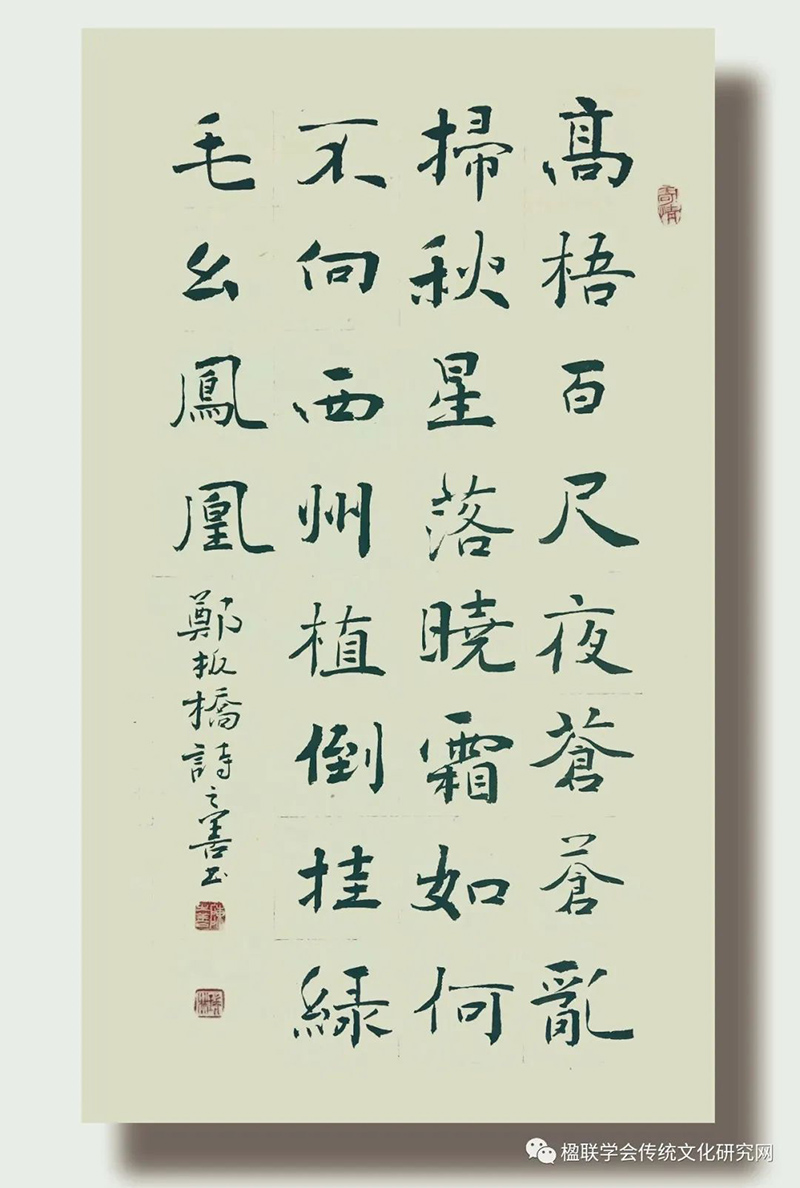 髙梧百尺夜蒼蒼亂
掃秋星落曉霜如何
不向西州植倒挂綠
毛幺鳳凰
鄭板橋詩之善书
楹联学会传统文化研究网